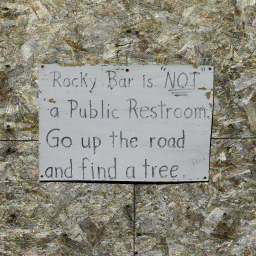 Rocky Bar is "NOT"
a Public Restroom.
Go up the road
and find a tree.